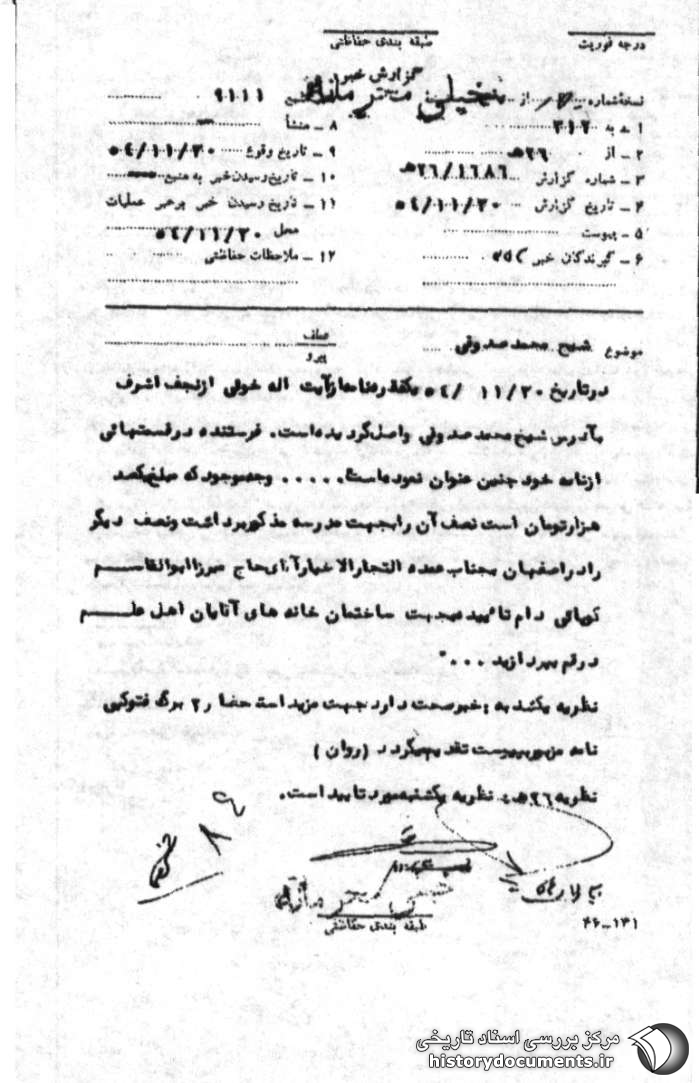 درجه فوریت
طبقه بندی حفاظتی
گزارش خبر
خیلی محرمانه
نسخه شماره از
۱ – به ۳۱۲
۲ – از ۲۶ ه‍
۳ – شماره گزارش ۲۶/۱۶۸۶ه‍
۴ – تاریخ گزارش ۵٤/۱۱/۲۰
۵ – پیوست
۶ – گیرندگان خبر
منبع ۹۱۱۱
۸ – منشأ
۹ – تاریخ وقوع ۵٤/۱۱/۲۰
۱۰ – تاریخ رسیدن خبر به منبع
۱۱ – تاریخ رسیدن خبر برهبر عملیات
محل ۵٤/۱۱/۲۰
۱۲ – ملاحظات حفاظتی
موضوع شیخ محمد صدوقی
عطف
پیرو
در تاریخ ۵٤/۱۱/۲۰ یکفقره نامه از آیت اله خوئی از نجف اشرف
بآدرس شیخ محمد صدوقی واصل گردیده است. فرستنده در قسمتهائی
از نامه خود چنین عنوان نموده است..... وجه موجود که مبلغ یکصد
هزار تومان است نصف آن را بجهت مدرسه مذکور برداشت و نصف دیگر
را در اصفهان بجناب عمده التجار الاخیار آقای حاج میرزا ابوالقاسم
کوپائی دام تائیده بجهت ساختمان خانه های آقایان اهل علم
در قم بپردازید ...."
نظریه یکشنبه : خبر صحت دارد جهت مزید استحضار ۲ برگ فتوکپی
نامه مزبور بپیوست تقدیم میگردد (روان)
نظریه ۲۶ه‍ : نظریه یکشنبه مورد تایید است.
۸ ۹
خیلی محرمانه
طبقه بندی حفاظتی
۴۶-۱۳۱
مرکز بررسی اسناد تاریخی
historydocuments.ir